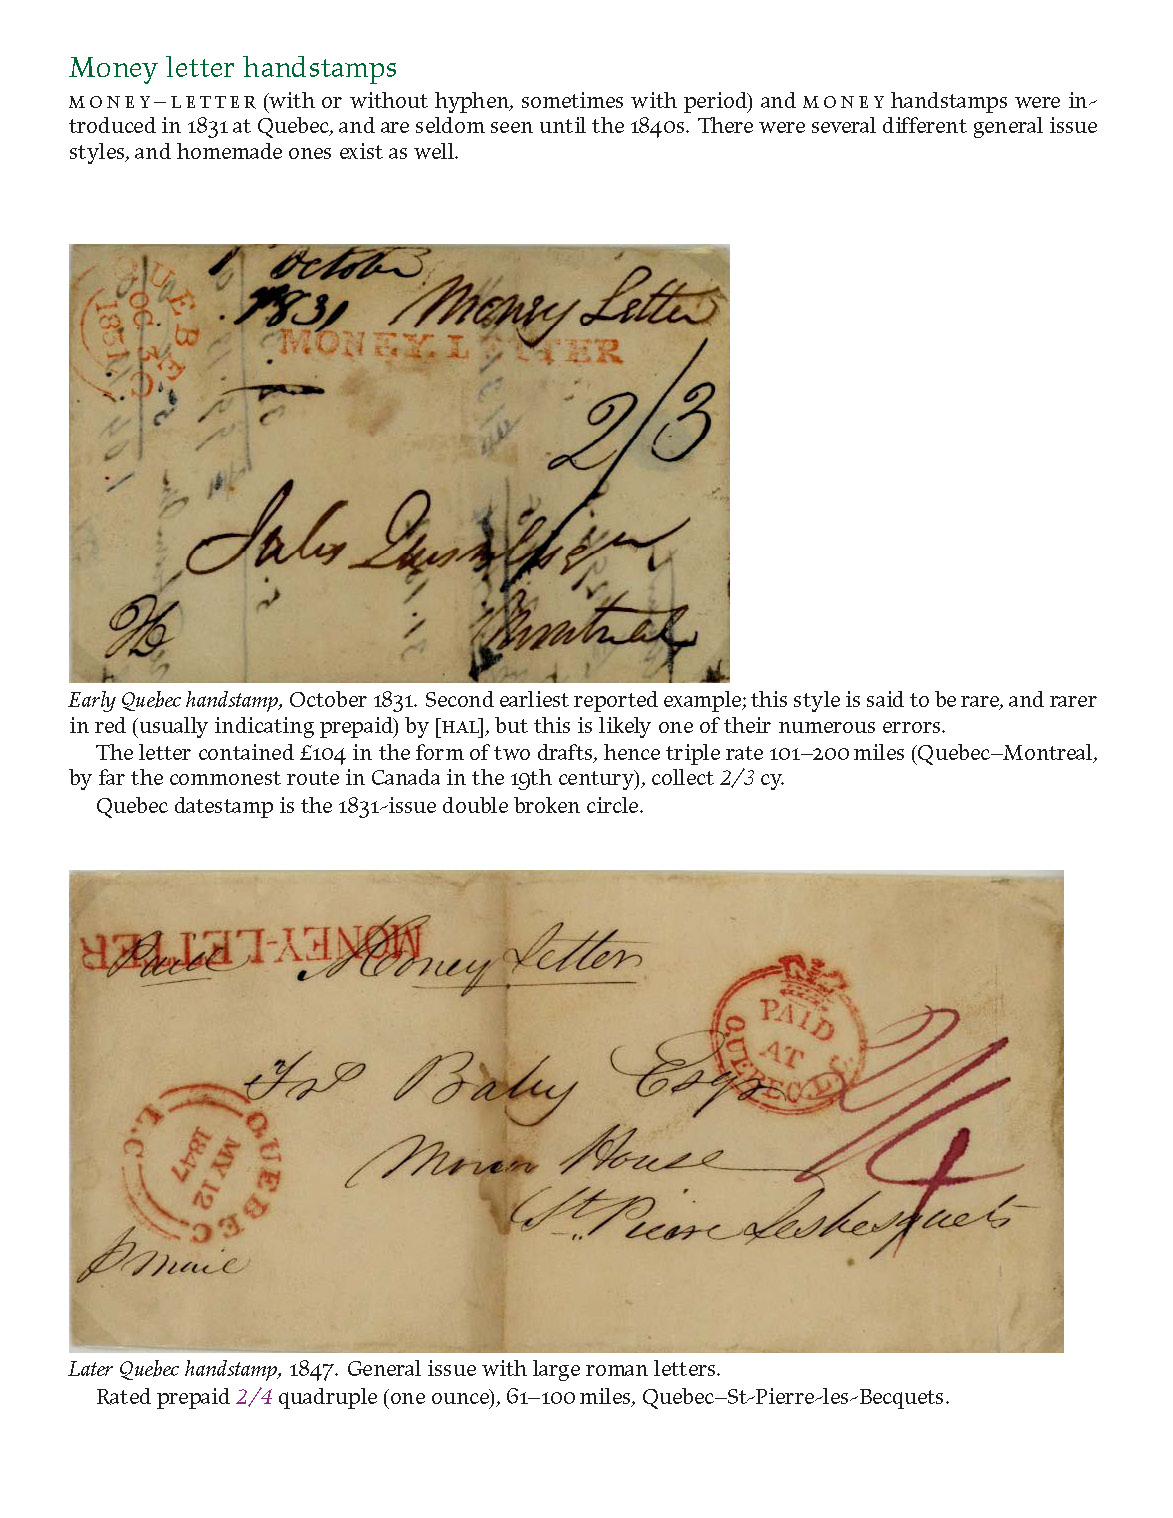 Money letter handstamps
MONEY–LETTER (with or without hyphen, sometimes with period) and MONEY handstamps were in-
troduced in 1831 at Quebec, and are seldom seen until the 1840s. There were several different general issue
styles, and homemade ones exist as well.
October
1831 Money Letter
QUEBEC
OC 3
1831
MONEY.LETTER
2/3
Montreal
Early Quebec handstamp, October 1831. Second earliest reported example; this style is said to be rare, and rarer
in red (usually indicating prepaid) by [HAL], but this is likely one of their numerous errors.
The letter contained £104 in the form of two drafts, hence triple rate 101–200 miles (Quebec–Montreal,
by far the commonest route in Canada in the 19th century), collect 2/3 cy.
Quebec datestamp is the 1831-issue double broken circle.
MONEY-LETTER
Paid Money Letter
PAID
AT
QUEBEC L.C
2/4
Baby Esqr
House
St. Pierre Lesbesquets
QUEBEC L.C
MY 12
1847
p mail
Later Quebec handstamp, 1847. General issue with large roman letters.
Rated prepaid 2/4 quadruple (one ounce), 61–100 miles, Quebec–St-Pierre-les-Becquets.